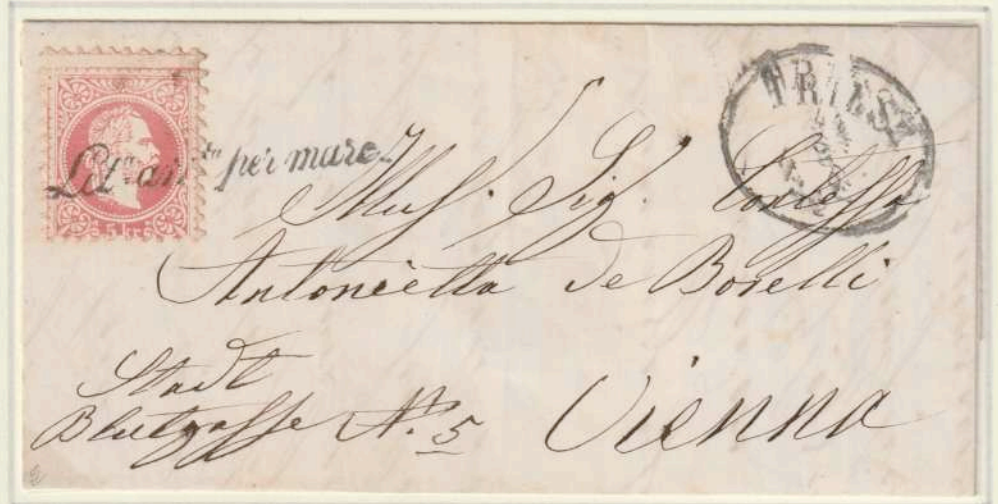 Let. arr. ta per mare
TRIEST
5 kr
Illus. Sig. Contessa
Antonietta de Borelli
Stadt
Blutgasse No. 5
Vienna